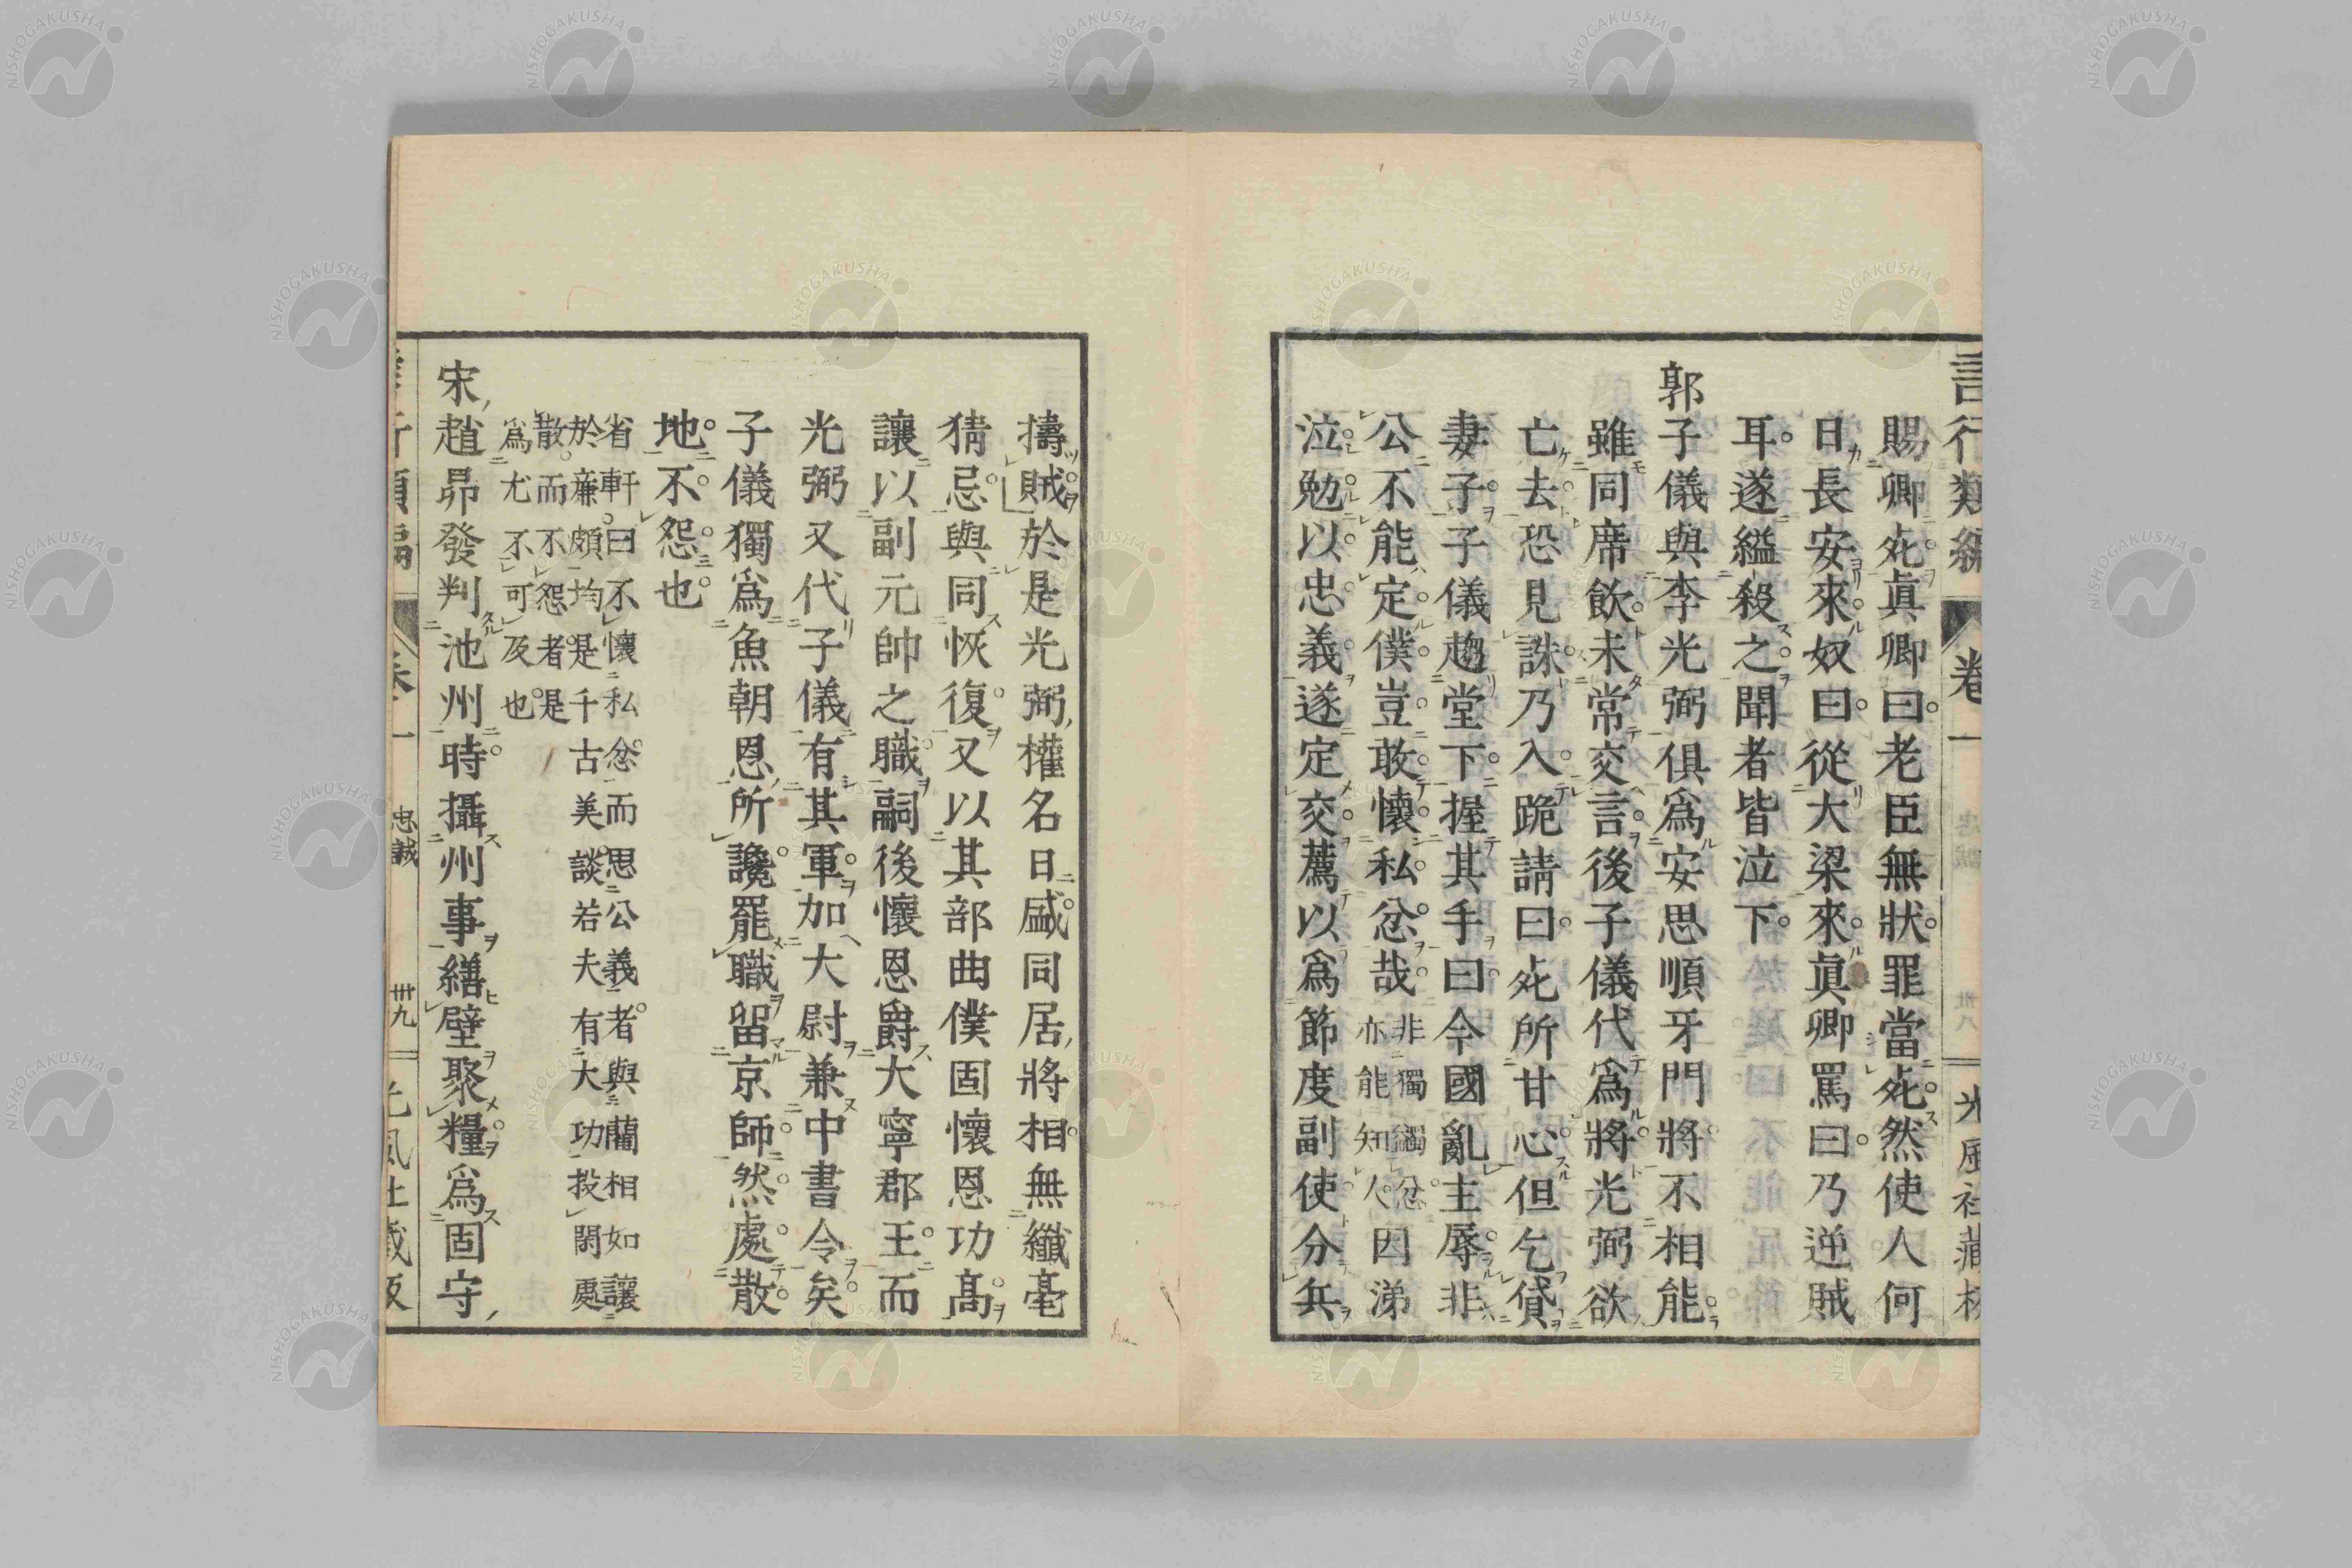 言行類編 卷一 光風社藏板
賜卿死眞卿曰老臣無狀罪當死然使人何
日長安來奴曰從大梁來眞卿罵曰乃逆賊
耳遂縊殺之聞者皆泣下
郭子儀與李光弼俱爲安思順牙門將不相能
雖同席飲未常交言後子儀代爲將光弼欲
亡去恐見誅乃入跪請曰死所甘心但乞貸
妻子子儀趨堂下握其手曰今國亂主辱非
公不能定僕豈敢懷私忿哉非獨蠲忿亦能知人因涕
泣勉以忠義遂定交薦以爲節度副使分兵
擣賊於是光弼權名日盛同居將相無纖毫
猜忌與同恢復又以其部曲僕固懷恩功高
讓以副元帥之職嗣後懷恩爵大寧郡王而
光弼又代子儀有其軍加大尉兼中書令矣
子儀獨爲魚朝恩所讒罷職留京師然處散
地不怨也
省軒曰不懷私忿而思公義者與藺相如讓
於廉頗均是千古美談若夫有大功投閑處
散而不怨者是
爲尤不可及也
宋趙昴發判池州時攝州事繕壁聚糧爲固守
卷一 忠誠 卅九 光風社藏板